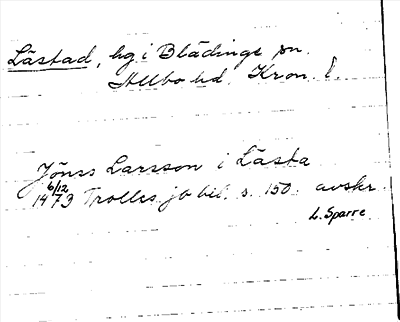 Lästad, hg i Blädinge sn.
Allbo hd. Kron. l.
Jönss Larsson i Lästa
6/12
1473 Trolles jb bil. s. 150. avskr.
L. Sparre